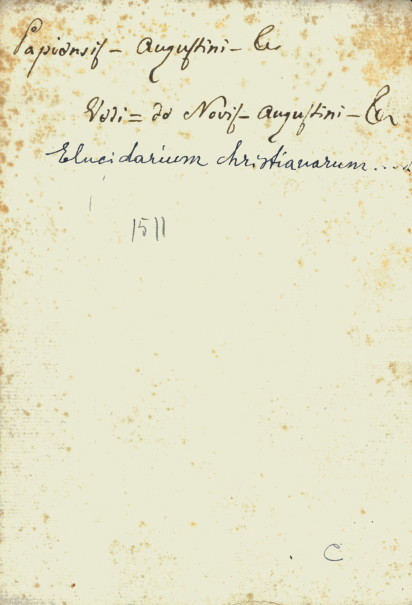 Papiensis - Augustini -
Veri = de Novis - Augustini -
Elucidarium christianarum....
1511
C